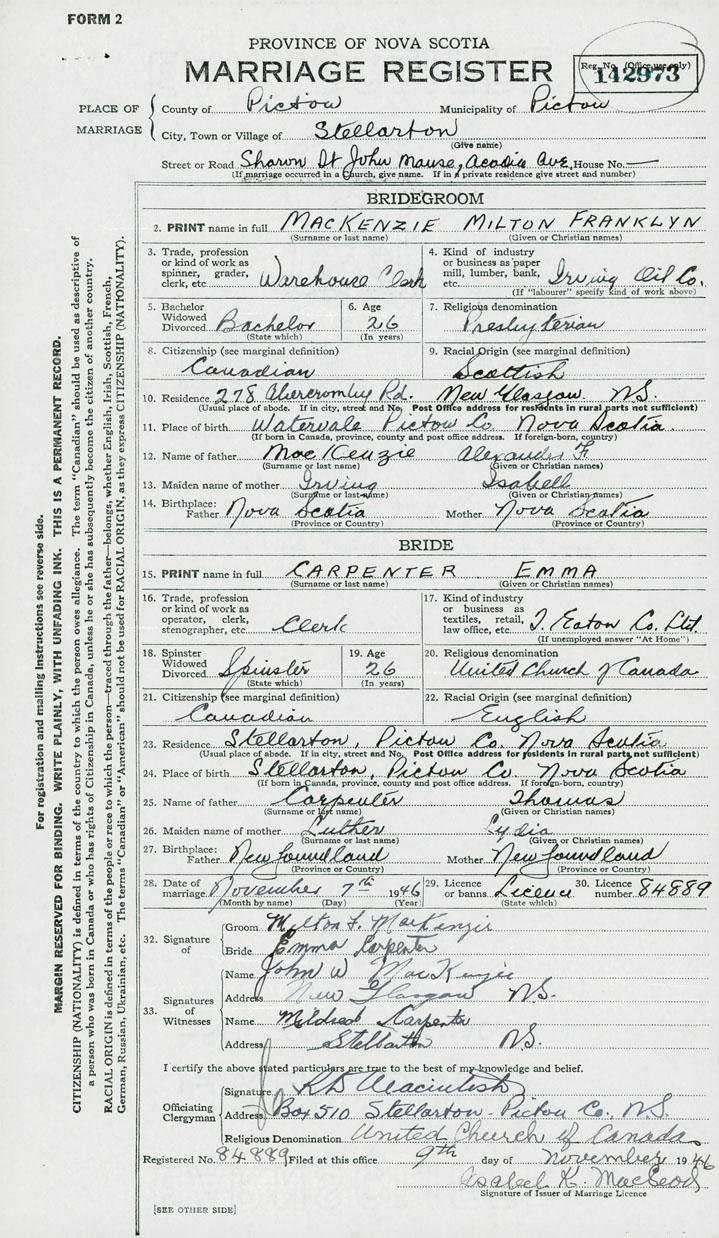 FORM 2
PROVINCE OF NOVA SCOTIA
MARRIAGE REGISTER
Reg. No. (Office use only)
142973
PLACE OF MARRIAGE
County of Pictou Municipality of Pictou
City, Town or Village of Stellarton
(Give name)
Street or Road Sharon St John Manse, Acadia Ave, House No. —
(If marriage occurred in a Church, give name. If in a private residence give street and number)
BRIDEGROOM
2. PRINT name in full MACKENZIE MILTON FRANKLYN
(Surname or last name) (Given or Christian names)
3. Trade, profession or kind of work as spinner, grader, clerk, etc. Warehouse Clerk
4. Kind of industry or business as paper mill, lumber, bank, etc. Irving Oil Co.
(If "labourer" specify kind of work above)
5. Bachelor Widowed Divorced Bachelor
(State which)
6. Age 26
(In years)
7. Religious denomination Presbyterian
8. Citizenship (see marginal definition) Canadian
9. Racial Origin (see marginal definition) Scottish
10. Residence 278 Abercromby Rd. New Glasgow N.S.
(Usual place of abode. If in city, street and No. Post Office address for residents in rural parts not sufficient)
11. Place of birth Watervale Pictou Co. Nova Scotia.
(If born in Canada, province, county and post office address. If foreign-born, country)
12. Name of father MacKenzie Alexander F.
(Surname or last name) (Given or Christian names)
13. Maiden name of mother Irving Isabell
(Surname or last name) (Given or Christian names)
14. Birthplace: Father Nova Scotia Mother Nova Scotia
(Province or Country) (Province or Country)
BRIDE
15. PRINT name in full CARPENTER EMMA
(Surname or last name) (Given or Christian names)
16. Trade, profession or kind of work as operator, clerk, stenographer, etc. Clerk
17. Kind of industry or business as textiles, retail, law office, etc. T. Eaton Co. Ltd.
(If unemployed answer "At Home")
18. Spinster Widowed Divorced Spinster
(State which)
19. Age 26
(In years)
20. Religious denomination United Church of Canada
21. Citizenship (see marginal definition) Canadian
22. Racial Origin (see marginal definition) English
23. Residence Stellarton, Pictou Co. Nova Scotia
(Usual place of abode. If in city, street and No. Post Office address for residents in rural parts not sufficient)
24. Place of birth Stellarton, Pictou Co Nova Scotia
(If born in Canada, province, county and post office address. If foreign-born, country)
25. Name of father Carpenter Thomas
(Surname or last name) (Given or Christian names)
26. Maiden name of mother Luther Lydia
(Surname or last name) (Given or Christian names)
27. Birthplace: Father Newfoundland Mother Newfoundland
(Province or Country) (Province or Country)
28. Date of marriage November 7th 1946
(Month by name) (Day) (Year)
29. Licence or banns Licence
(State which)
30. Licence number 84889
32. Signature of
Groom Milton F. MacKenzie
Bride Emma Carpenter
33. Signatures of Witnesses
Name John W MacKenzie
Address New Glasgow N.S.
Name Mildred Carpenter
Address Stellarton N.S.
I certify the above stated particulars are true to the best of my knowledge and belief.
Officiating Clergyman
Signature Macintosh
Address Box 510 Stellarton Pictou Co. N.S.
Religious Denomination United Church of Canada
Registered No. 84889 Filed at this office 9th day of November 1946
Isabel K. MacLeod
Signature of Issuer of Marriage Licence
[SEE OTHER SIDE]
For registration and mailing instructions see reverse side.
MARGIN RESERVED FOR BINDING. WRITE PLAINLY, WITH UNFADING INK. THIS IS A PERMANENT RECORD.
CITIZENSHIP (NATIONALITY) is defined in terms of the country to which the person owes allegiance. The term "Canadian" should be used as descriptive of
a person who was born in Canada or who has rights of Citizenship in Canada, unless he or she has subsequently become the citizen of another country.
RACIAL ORIGIN is defined in terms of the people or race to which the person—traced through the father—belongs, whether English, Irish, Scottish, French,
German, Russian, Ukrainian, etc. The terms "Canadian" or "American" should not be used for RACIAL ORIGIN, as they express CITIZENSHIP (NATIONALITY).